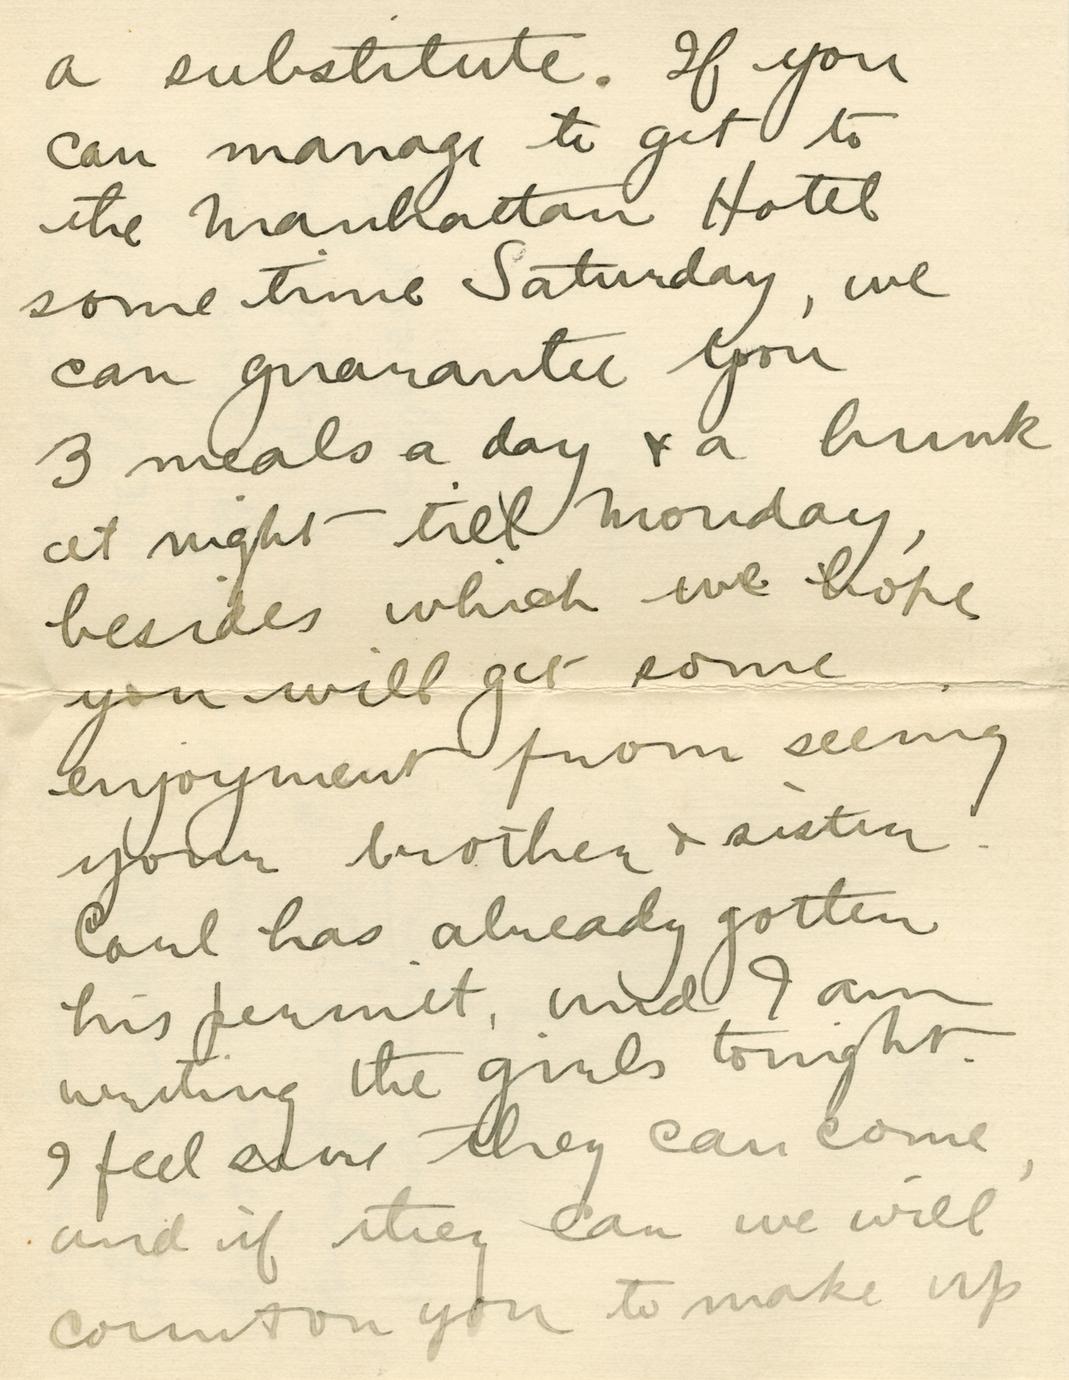 a substitute. If you
can manage to get to
the Manhattan Hotel
some time Saturday, we
can guarantee you
3 meals a day & a bunk
at night till Monday,
besides which we hope
you will get some
enjoyment from seeing
your brother & sister.
Carl has already gotten
his permit, and I am
writing the girls tonight.
I feel sure they can come,
and if they can we will
count on you to make up